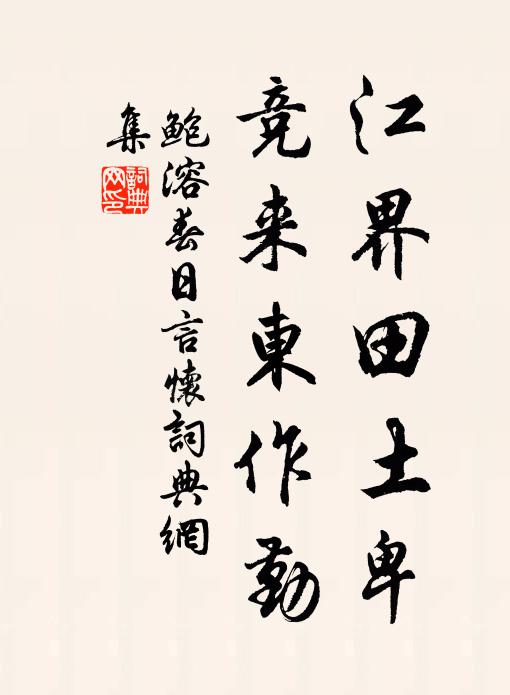 江界田土卑
竞来東作勤
鲍溶春日言懷詞典網
集
詞典
网印